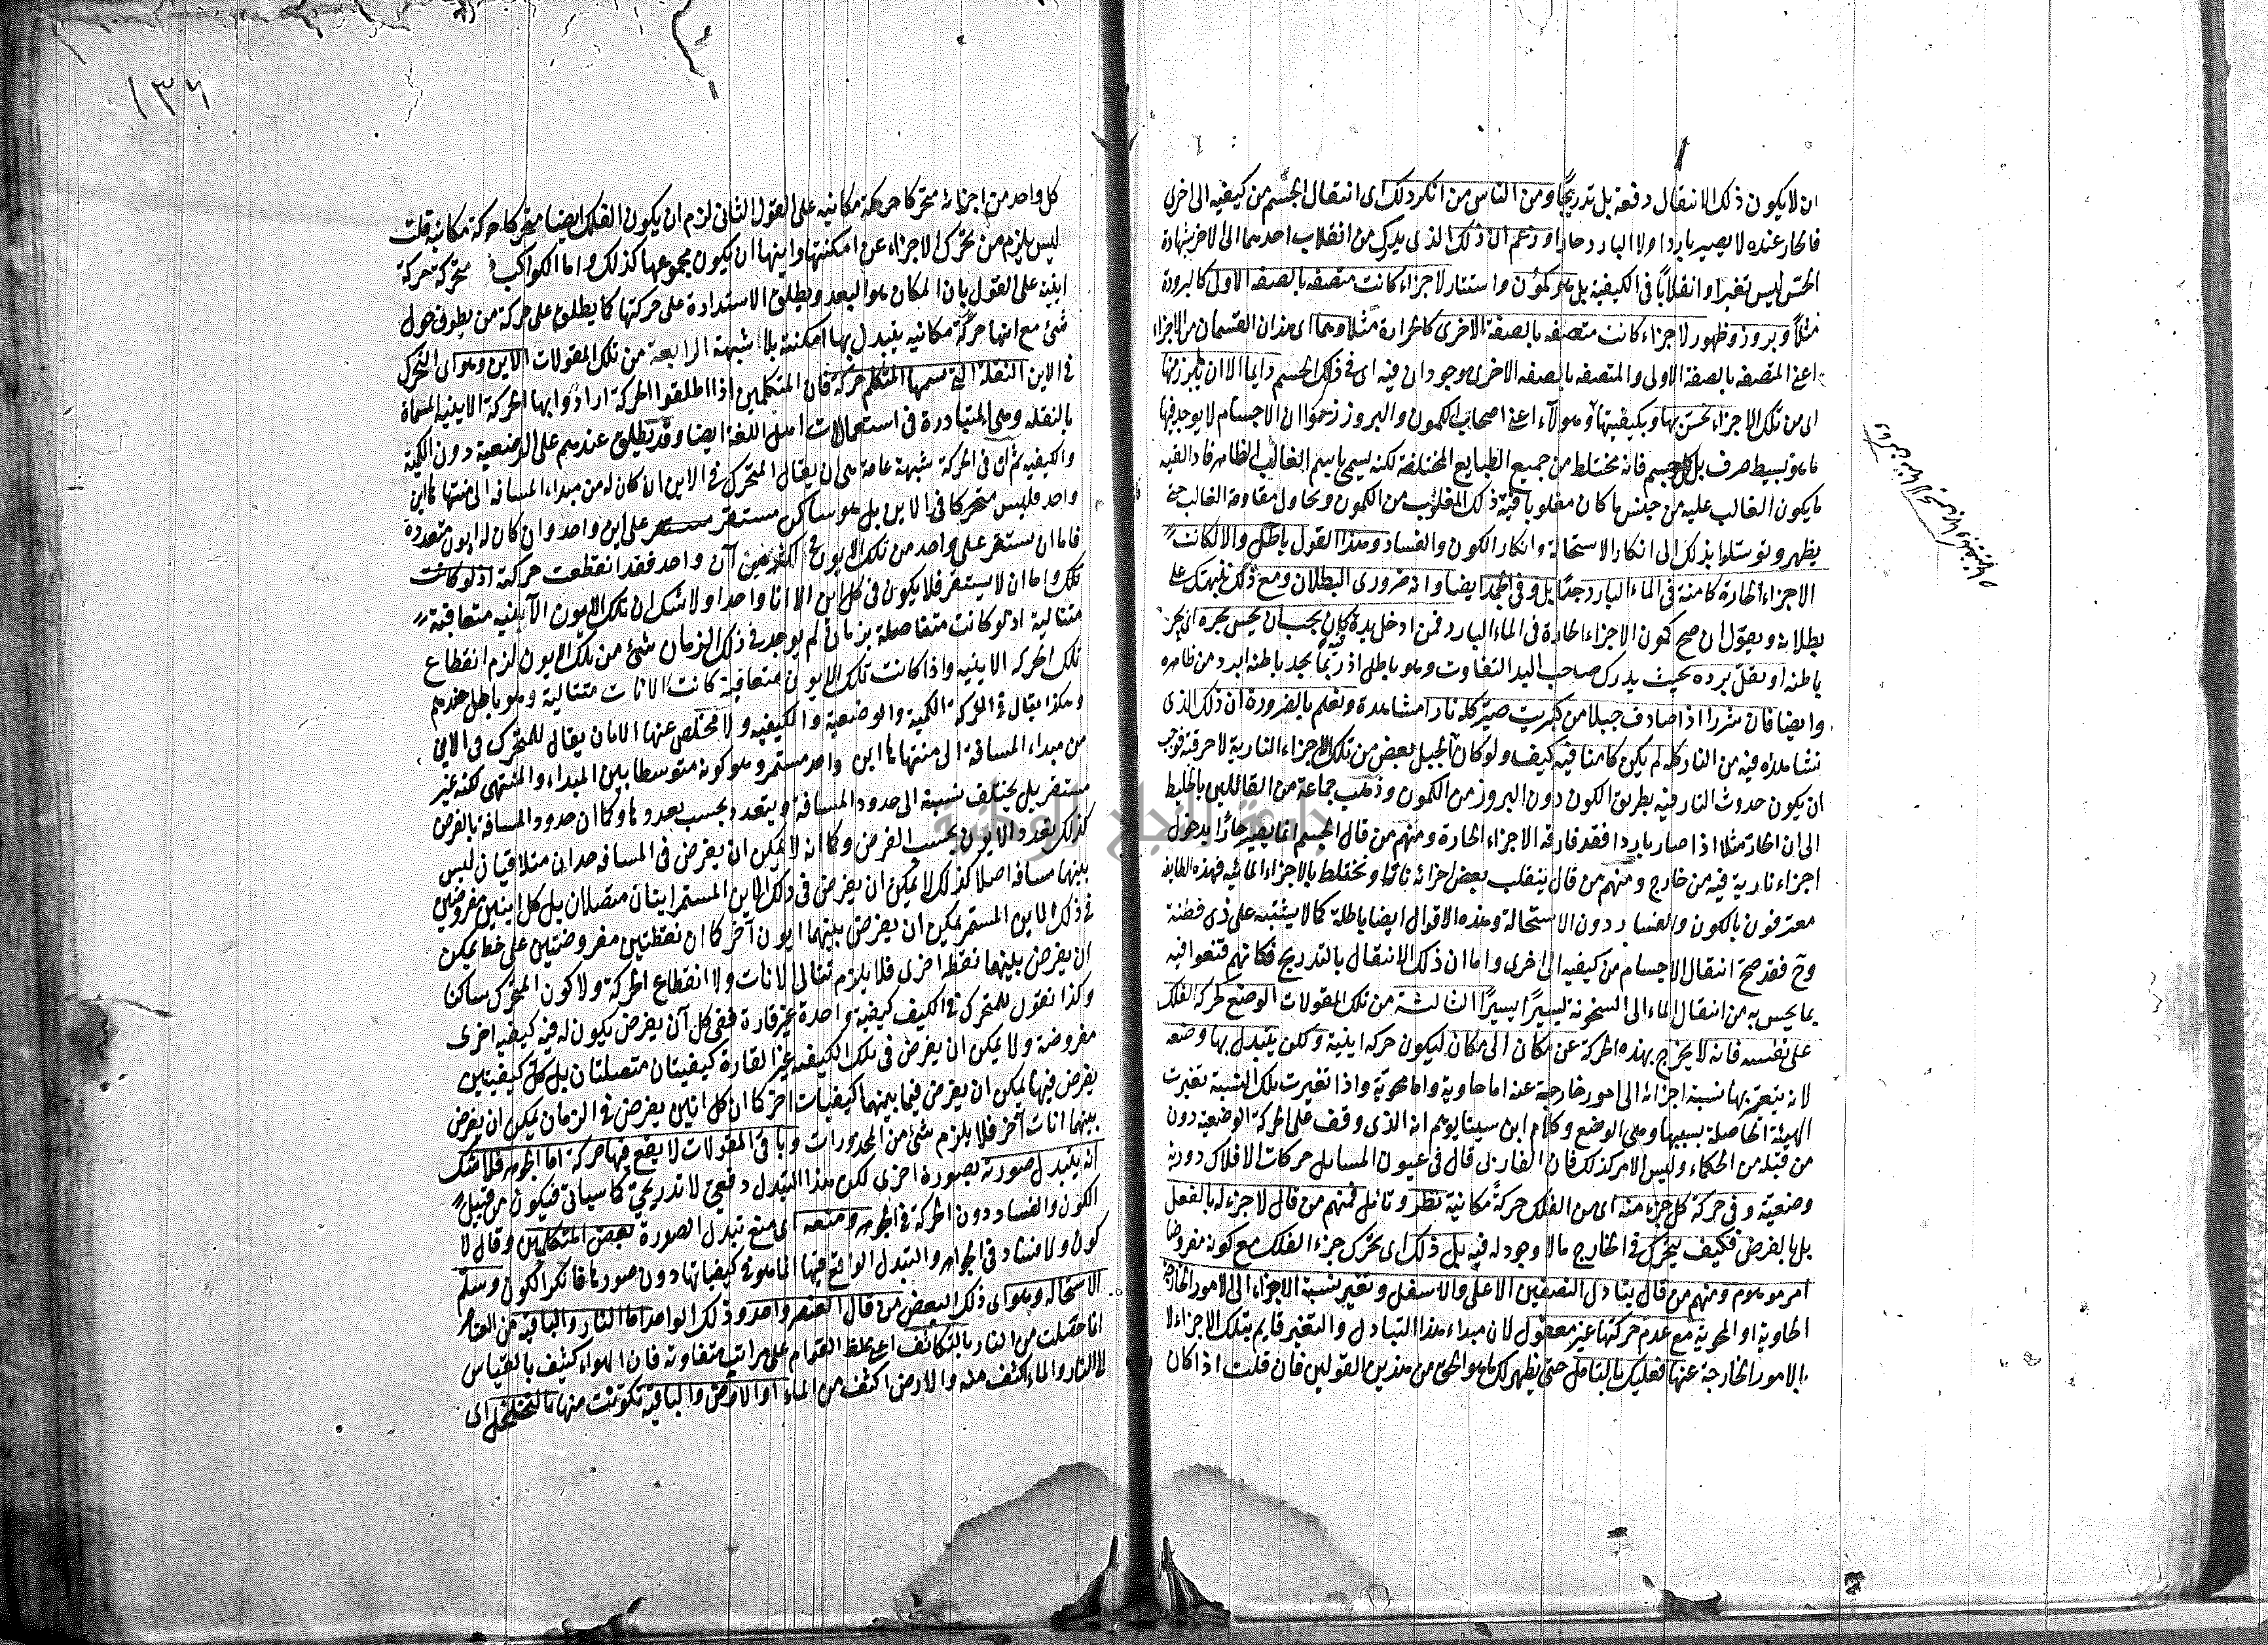 ان لا يكون ذلك الانتقال دفعة بل تدريجًا ومن الناس من انكر ذلك اى انتقال الجسم من كيفيه الى اخرى
فالحار عنده لا يصير باردا ولا البارد حارا وزعم ان ذلك الذى يدرك من انقلاب احدهما الى الاخر بشهادة
الحس ليس تغيرا وانقلابًا فى الكيفية بل هو كمون واستتار لاجزاء كانت متصفه بالصفه الاولى كالبرودة
مثلًا وبروز وظهور لاجزاء كانت متصفه بالصفة الاخرى كالحرارة مثلا وهما اى هذان القسمان من الاجزاء
اعنى المتصفه بالصفة الاولى والمتصفه بالصفه الاخرى موجودان فيه اى فى ذلك الجسم دايما الا ان ما يبرز منها
اى من تلك الاجزاء يحس بها وبكيفيتها وهولاء اعنى اصحاب الكمون والبروز زعموا ان الاجسام لا يوجد فيها
ما هو بسيط صرف بل كل جسم فانه مختلط من جميع الطبايع المختلفة لكنه يسمى باسم الغالب الظاهر فاذا لقيه
ما يكون الغالب عليه من جنس ما كان مغلوبا فيه ذلك المغلوب من الكمون ويحاول مقاومة الغالب حتى
يظهر وتوسلوا بذلك الى انكار الاستحالة وانكار الكون والفساد وهذا القول باطل والا لكانت
الاجزاء الحارة كامنة فى الماء البارد جدًا بل وفى الجمد ايضا وانه ضرورى البطلان ومع ذلك ننبهك على
بطلانه ونقول ان صح كمون الاجزاء الحارة فى الماء البارد فمن ادخل يده فيه كان يجب ان يحس بحره اى بحر
باطنه او بقلة برده بحيث يدرك صاحب اليد التفاوت وهو باطل اذ ربما يجد باطنه ابرد من ظاهره
وايضا فان شررا اذا صادف جبلا من كبريت صيّر كله نارا مشاهدة ونعلم بالضرورة ان ذلك الذى
نشاهده فيه من النار كله لم يكن كامنا فيه كيف ولو كان فى الجبل بعض من تلك الاجزاء النارية لاحرقته فوجب
ان يكون حدوث النار فيه بطريق الكون دون البروز من الكمون وذهب جماعة من القائلين بالخليط
الى ان الحار مثلا اذا صار باردا فقد فارقه الاجزاء الحارة ومنهم من قال الجسم انما يصير حارًا بدخول
اجزاء نارية فيه من خارج ومنهم من قال ينقلب بعض اجزائه نارًا ويختلط بالاجزاء المائيه فهذه الطايفه
معترفون بالكون والفساد دون الاستحالة وهذه الاقوال ايضا باطلة كما لا يشتبه على ذى فطنة
وح فقد صح انتقال الاجسام من كيفيه الى اخرى واما ان ذلك الانتقال بالتدريج فكانهم قنعوا فيه
بما يحس به من انتقال الماء الى السخونة يسيرًا يسيرًا الثالثة من تلك المقولات الوضع كحركة الفلك
على نفسه فانه لا يخرج بهذه الحركة عن مكان الى مكان ليكون حركه اينية ولكن يتبدل بها وضعه
لانه يتغير بها نسبة اجزائه الى امور خارجية عنه اما حاوية واما محوية واذا تغيرت تلك النسبة تغيرت
الهيئة الحاصلة بسببها وهى الوضع وكلام ابن سينا يوهم انه الذى وقف على الحركة الوضعية دون
من قبله من الحكماء وليس الامر كذلك فان الفارابى قال فى عيون المسايل حركات الافلاك دورية
وضعية وفى حركة كل جزء منه اى من الفلك حركة مكانية نظر وتامل فمنهم من قال لا جزء له بالفعل
بل بالفرض فكيف يتحرك فى الخارج ما لا وجود له فيه بل ذلك اى تحرك جزء الفلك مع كونه مفروضا
امر موهوم ومنهم من قال بتبادل النصفين الاعلى والاسفل وتغير نسبة الاجزاء الى الامور الخارجة
الحاوية او المحوية مع عدم حركتها غير معقول لان مبداء هذا التبادل والتغير قايم بتلك الاجزاء لا
بالامور الخارجة عنها فعليك بالتامل حتى يظهر لك ما هو الحق من هذين القولين فان قلت اذا كان
١٣٦
كل واحد من اجزائه متحركا حركة مكانيه على القول الثانى لزم ان يكون الفلك ايضا متحركا حركة مكانية قلت
ليس يلزم من تحرك الاجزاء عن امكنتها واينها ان يكون مجموعها كذلك واما الكواكب فمتحركة حركة
اينية على القول بان المكان هو البعد ويطلق الاستدارة على حركتها كما يطلق على حركة من يطوف حول
شئ مع انها حركة مكانيه يتبدل بها امكنته بلا شبهة الرابعة من تلك المقولات الاين وهو اى التحرك
فى الاين النقلة التى يسميها المتكلم حركة فان المتكلمين اذا اطلقوا الحركة ارادوا بها الحركة الاينيه المسماة
بالنقله وهى المتبادرة فى استعمالات اهل اللغة ايضا وقد تطلق عندهم على الوضعية دون الكمية
والكيفيه ثم ان فى الحركة شبهة عامة هى ان يقال المتحرك فى الاين ان كان له من مبداء المسافه الى منتهاها اين
واحد فليس متحركا فى الاين بل هو ساكن مستقر على اين واحد وان كان له ايون متعددة
فاما ان يستقر على واحد من تلك الايون اكثر من آن واحد فقد انقطعت حركته اذ لو كانت
تلك واما ان لا يستقر فلا يكون فى كل اين الا انا واحدا ولا شك ان تلك الايون الآنيه متعاقبة
متتالية اذ لو كانت متفاصلة بزمان لم يوجد فى ذلك الزمان شئ من تلك الايون لزم انقطاع
تلك الحركه الاينيه واذا كانت تلك الايون متعاقبة كانت الانات متتالية وهو باطل عندهم
وهكذا يقال فى الحركة الكمية والوضعية والكيفيه ولا مخلص عنها الا بان يقال للمتحرك فى الاين
من مبداء المسافة الى منتهاها اين واحد مستمر وهو كونه متوسطا بين المبداء والمنتهى لكنه غير
مستقر بل يختلف نسبته الى حدود المسافة ويتعدد بحسب تعددها وكما ان حدود المسافة بالفرض
كذلك تعدد الايون بحسب الفرض وكما انه لا يمكن ان يفرض فى المسافه حدان متلاقيان ليس
بينهما مسافه اصلا كذلك لا يمكن ان يفرض فى ذلك الاين المستمر اينان متصلان بل كل اينين مفروضين
فى ذلك الاين المستمر يمكن ان يفرض بينهما ايون آخر كما ان نقطتين مفروضتين على خط يمكن
ان يفرض بينهما نقطه اخرى فلا يلزم تتالى الانات ولا انقطاع الحركة ولا كون المتحرك ساكنا
وكذا نقول للمتحرك فى الكيف كيفية واحدة غير قارة ففى كل آن يفرض يكون له فيه كيفيه اخرى
مفروضة ولا يمكن ان يفرض فى تلك الكيفيه غير القارة كيفيتان متصلتان بل كل كيفيتين
يفرض فيها يمكن ان يفرض فيما بينهما كيفيات اخر كما ان كل انين يفرض فى الزمان يمكن ان يفرض
بينهما انات آخر فلا يلزم شئ من المحذورات وباقى المقولات لا يقع فيها حركة اما الجوهر فلا شك
انه يتبدل صورته بصورة اخرى لكن هذا التبدل دفعى لا تدريجى كما سياتى فيكون من قبيل
الكون والفساد دون الحركة فى الجوهر ومنعه اى منع تبدل الصورة بعض المتكلمين وقال لا
كون ولا فساد فى الجواهر والتبدل الواقع فيها انما هو فى كيفياتها دون صورها فانكر الكون وسلم
الاستحاله وهو اى ذلك البعض من قال العنصر واحد وذلك الواحد اما النار والباقيه من العناصر
انما حصلت من النار بالتكاثف اى غلظ القوام على مراتب متفاوته فان الهواء كثيف بالقياس
الى النار والماء اكثف منه والارض اكثف من الماء او الارض والباقيه تكونت منها بالتخلخل اى